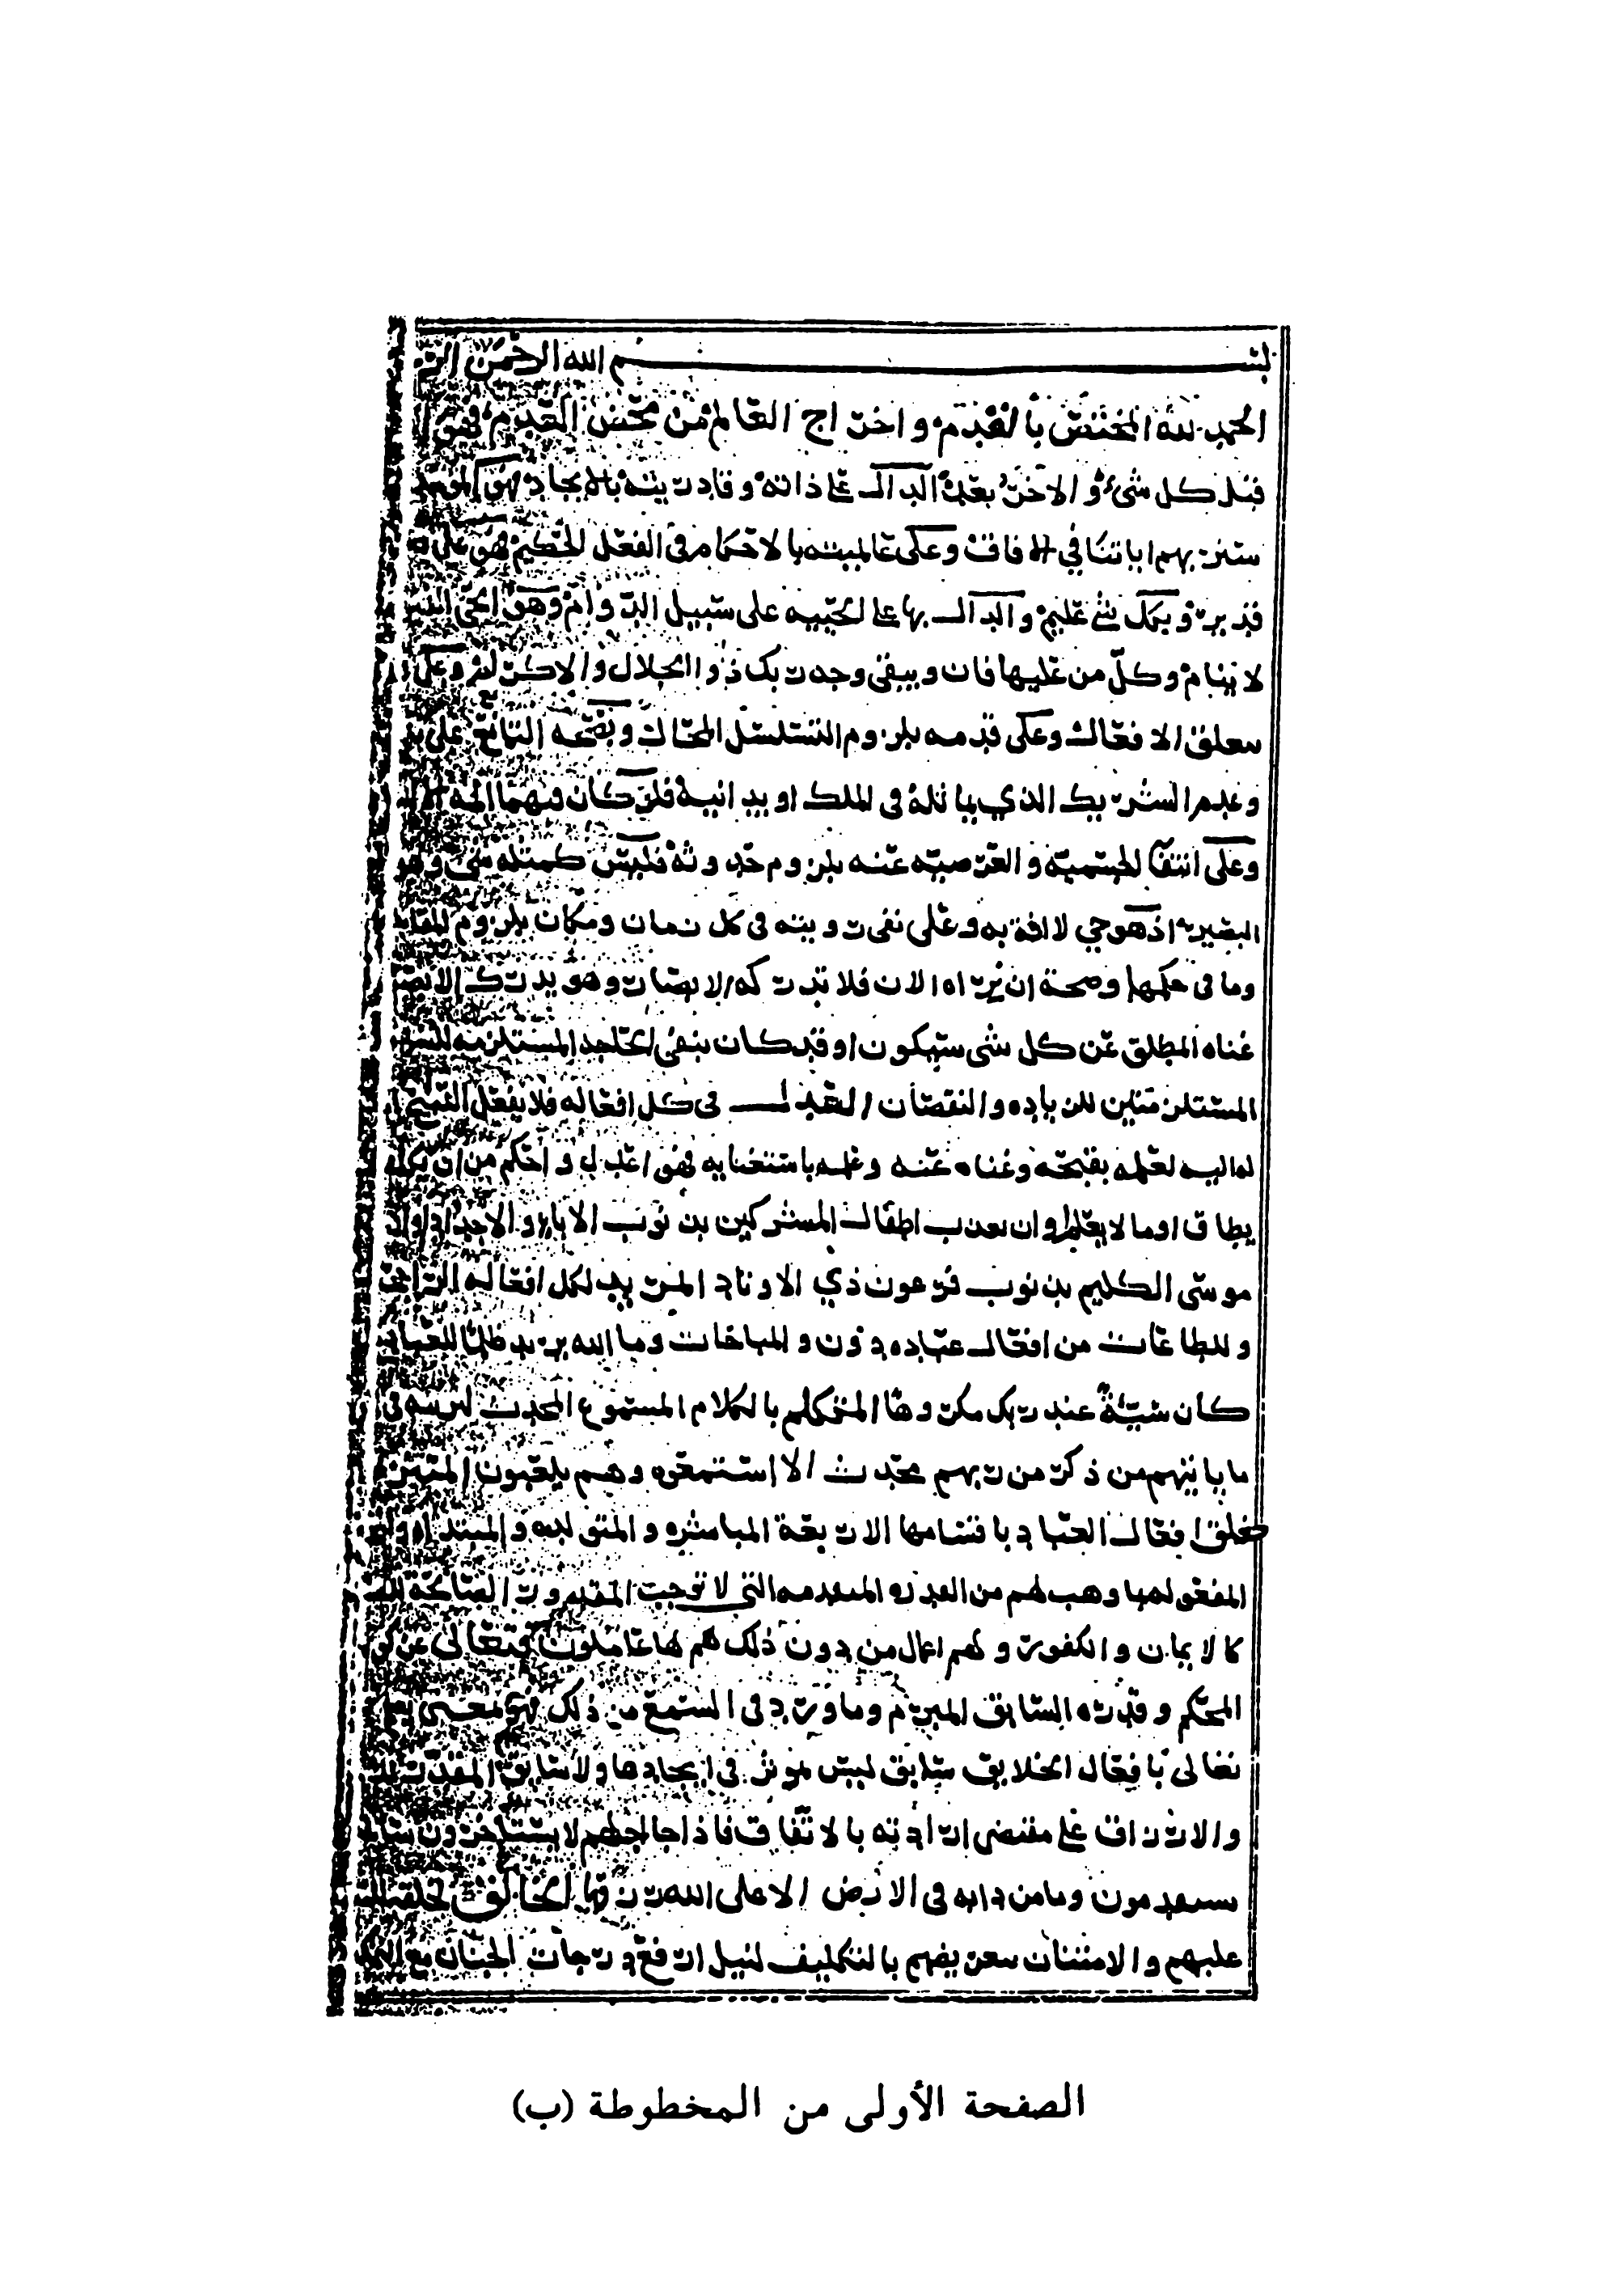 بسم الله الرحمن
الحمد لله المختص بالقدم واخراج العالم من محض العدم فهو
قبل كل شيء والاخر بعد الدال على ذاته وقادريته بالايجاد فهو
سنريهم اياتنا في الافاق وعلى عالميته بالاحكام في الفعل الحكيم فهو على
قدير وبكل شي عليم والدال بها على الحييه على سبيل الدوام وهو الحي
لا ينام وكل من عليها فان ويبقى وجه ربك ذو الجلال والاكرام وعلى
الافعال وعلى قدمه بلزوم التسلسل المحال وبصحه التمانع على
وعدم الشريك الذي يماثله في الملك او يدانيه فلو كان فيهما الهة
وعلى انتفا الجسمية والعرضيه عنه بلزوم حدوثه فليس كمثله شي وهو
البصير اذ هو حي لا افة به وعلى نفي رويته في كل زمان ومكان بلزوم
وما في حكمها وصحة ان نراه الان فلا تدركه الابصار وهو يدرك
غناه المطلق عن كل شي سيكون او قد كان بنفي الحاجه المستلزمه
المستلزمتين للزياده والنقصان العدل في كل افعاله فلا يفعل القبيح
له اليه لعلمه بقبحه وغناه عنه وعلمه باستغنايه فهو اعدل واحكم من ان
يطاق او ما لا يعلم او ان يعذب اطفال المشركين بذنوب الاباء والاجداد
موسى الكليم بذنوب فرعون ذي الاوتاد المريد لكل افعاله
وللطاعات من افعال عباده دون والمباحات وما الله يريد ظلما للعباد
كان سيئه عند ربك مكروها المتكلم بالكلام المسموع المحدث
ما ياتيهم من ذكر من ربهم محدث الا استمعوه وهم يلعبون
خلق افعال العباد باقسامها الاربعة المباشره والمتولده والمبتداه
المفعوله بما وهب لهم من القدره المتقدمه التي لا توجب المقدور الصالحة
كالايمان والكفور ولهم اعمال من دون ذلك هم لها عاملون فتعالى عن
المحكم وقدره السابق المبرم وما ورد في السمع من ذلك فهو بمعنى
تعالى بافعال الخلايق سابق ليس موثر في ايجادها ولا سايق
والارزاق على مقتضى ارادته بالاتفاق فاذا جا اجلهم لا يستاخرون
يستقدمون وما من دابه في الارض الا على الله رزقها الخالق
عليهم والامتنان بتعريضهم بالتكليف لنيل ارفع درجات الجنان مع
الصفحة الأولى من المخطوطة (ب)